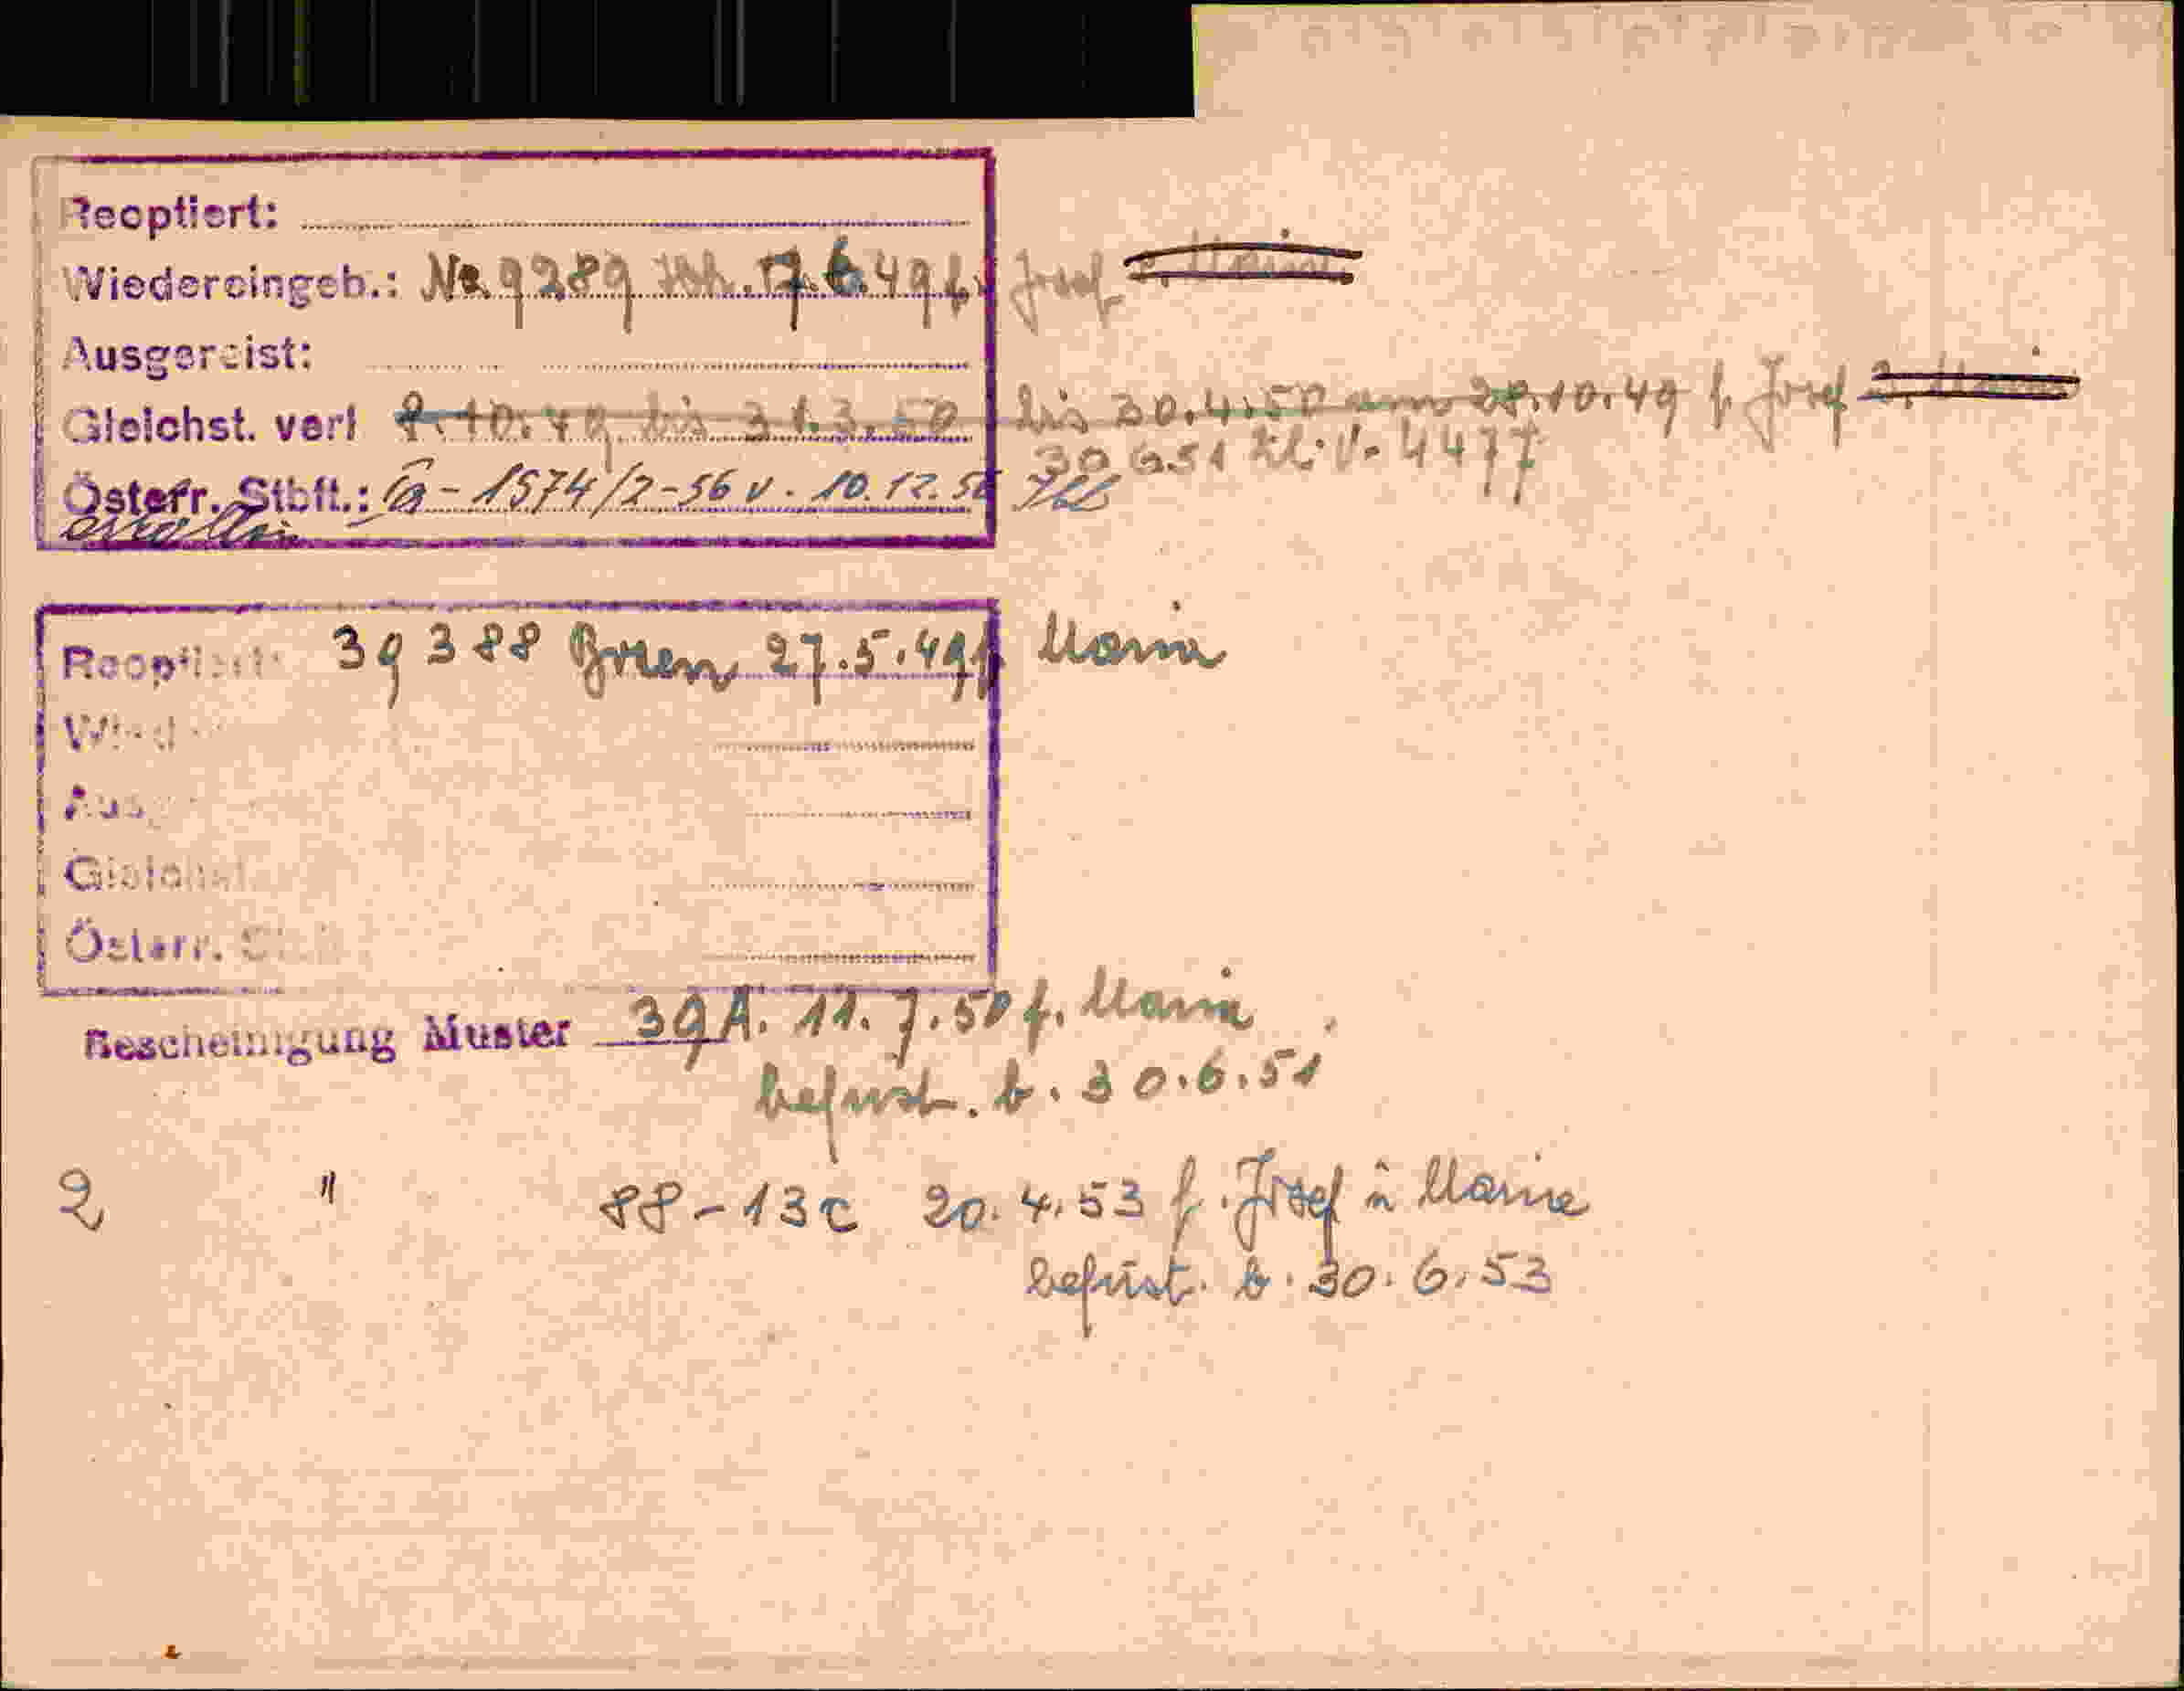 Reoptiert:
Wiedereingeb.: No 9289 17.6.49 f. Josef
Ausgereist:
Gleichst. verl 8.10.49 bis 31.3.50 bis 30.4.50 am 28.10.49 f. Josef
30.6.51 Zl. V. 4477
Österr. Stbft.: Ia-1574/2-56 v. 10.12.56
Reoptiert: 39388 Bozen 27.5.49 f. Maria
Wied
Ausg
Gleichst
Österr. St
Bescheinigung Muster 39A. 11.7.50 f. Maria
befrist. b. 30.6.51
2 " 88-13c 20.4.53 f. Josef u Maria
befrist. b. 30.6.53